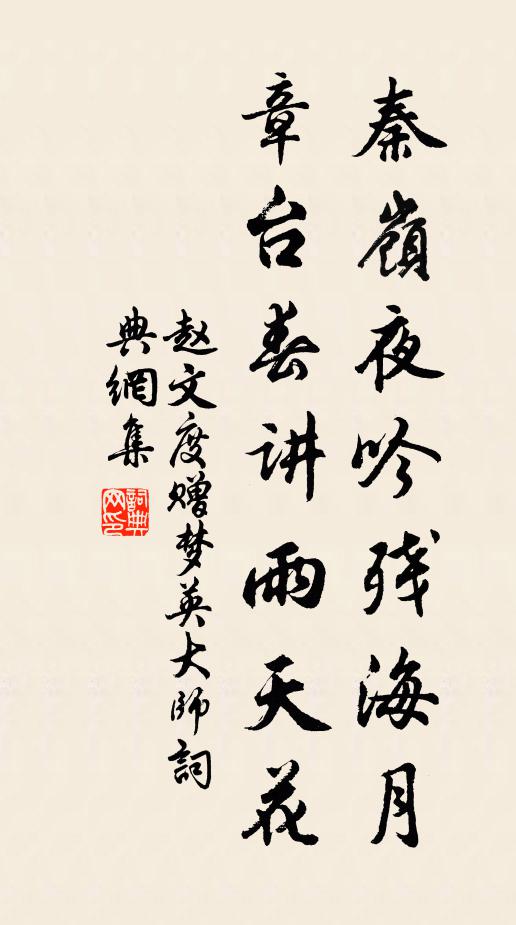 秦嶺夜吟残海月
章台春讲雨天花
赵文度赠梦英大师詞
典網集
詞典网印